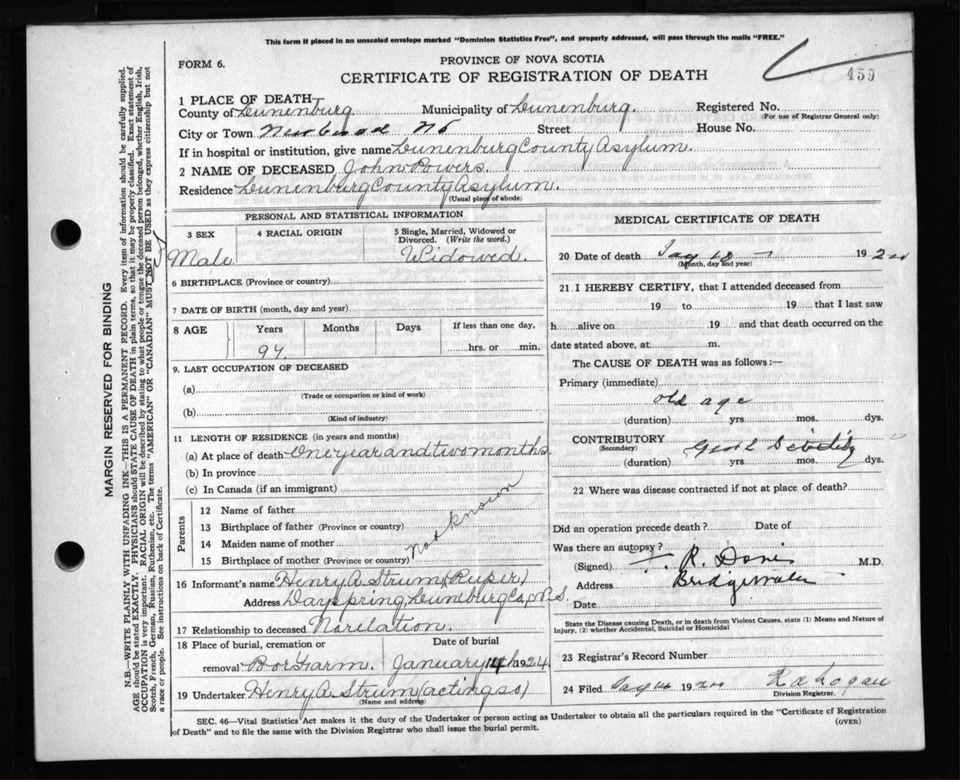 This form if placed in an unsealed envelope marked "Dominion Statistics Free", and property addressed, will pass through the mails "FREE."
FORM 6.
PROVINCE OF NOVA SCOTIA
CERTIFICATE OF REGISTRATION OF DEATH
459
1 PLACE OF DEATH
County of Lunenburg Municipality of Lunenburg. Registered No.
(For use of Registrar General only)
City or Town Street House No.
If in hospital or institution, give name Lunenburg County Asylum.
2 NAME OF DECEASED John Powers.
Residence Lunenburg County Asylum.
(Usual place of abode)
PERSONAL AND STATISTICAL INFORMATION
3 SEX 4 RACIAL ORIGIN 5 Single, Married, Widowed or Divorced. (Write the word.)
Male Widowed.
6 BIRTHPLACE (Province or country)
7 DATE OF BIRTH (month, day and year)
8 AGE Years Months Days If less than one day,
94. hrs. or min.
9. LAST OCCUPATION OF DECEASED
(a)
(Trade or occupation or kind of work)
(b)
(Kind of industry)
11 LENGTH OF RESIDENCE (in years and months)
(a) At place of death One year and two months.
(b) In province
(c) In Canada (if an immigrant)
Parents
12 Name of father
13 Birthplace of father (Province or country)
14 Maiden name of mother
15 Birthplace of mother (Province or country)
not known
16 Informant's name Henry A. Strum
Address Dayspring, Co, N.S.
17 Relationship to deceased No relation.
18 Place of burial, cremation or removal Farm. Date of burial January 14 1924.
19 Undertaker Henry A. Strum (acting so)
(Name and address)
MEDICAL CERTIFICATE OF DEATH
20 Date of death 192
(Month, day and year)
21 I HEREBY CERTIFY, that I attended deceased from
19 to 19 that I last saw
h alive on 19 and that death occurred on the
date stated above, at m.
The CAUSE OF DEATH was as follows:—
Primary (immediate)
old age
(duration) yrs. mos. dys.
CONTRIBUTORY
(Secondary)
(duration) yrs. mos. dys.
22 Where was disease contracted if not at place of death?
Did an operation precede death? Date of
Was there an autopsy?
(Signed) M.D.
Address Bridgewater
Date
State the Disease causing Death, or in death from Violent Causes, state (1) Means and Nature of Injury, (2) whether Accidental, Suicidal or Homicidal
23 Registrar's Record Number
24 Filed 192 Logan
Division Registrar.
SEC. 46—Vital Statistics Act makes it the duty of the Undertaker or person acting as Undertaker to obtain all the particulars required in the "Certificate of Registration
of Death" and to file the same with the Division Registrar who shall issue the burial permit.
(OVER)
MARGIN RESERVED FOR BINDING
N.B.—WRITE PLAINLY WITH UNFADING INK—THIS IS A PERMANENT RECORD. Every item of information should be carefully supplied.
AGE should be stated EXACTLY. PHYSICIANS should STATE CAUSE OF DEATH in plain terms, so that it may be properly classified. Exact statement of
OCCUPATION is very important. RACIAL ORIGIN will be described by stating to what people or tongue the deceased person belonged, whether English, Irish,
Scotch, French, German, Russian, Ruthenian, etc. The terms "AMERICAN" OR "CANADIAN" MUST NOT BE USED as they express citizenship but not
a race or people. See instructions on back of Certificate.